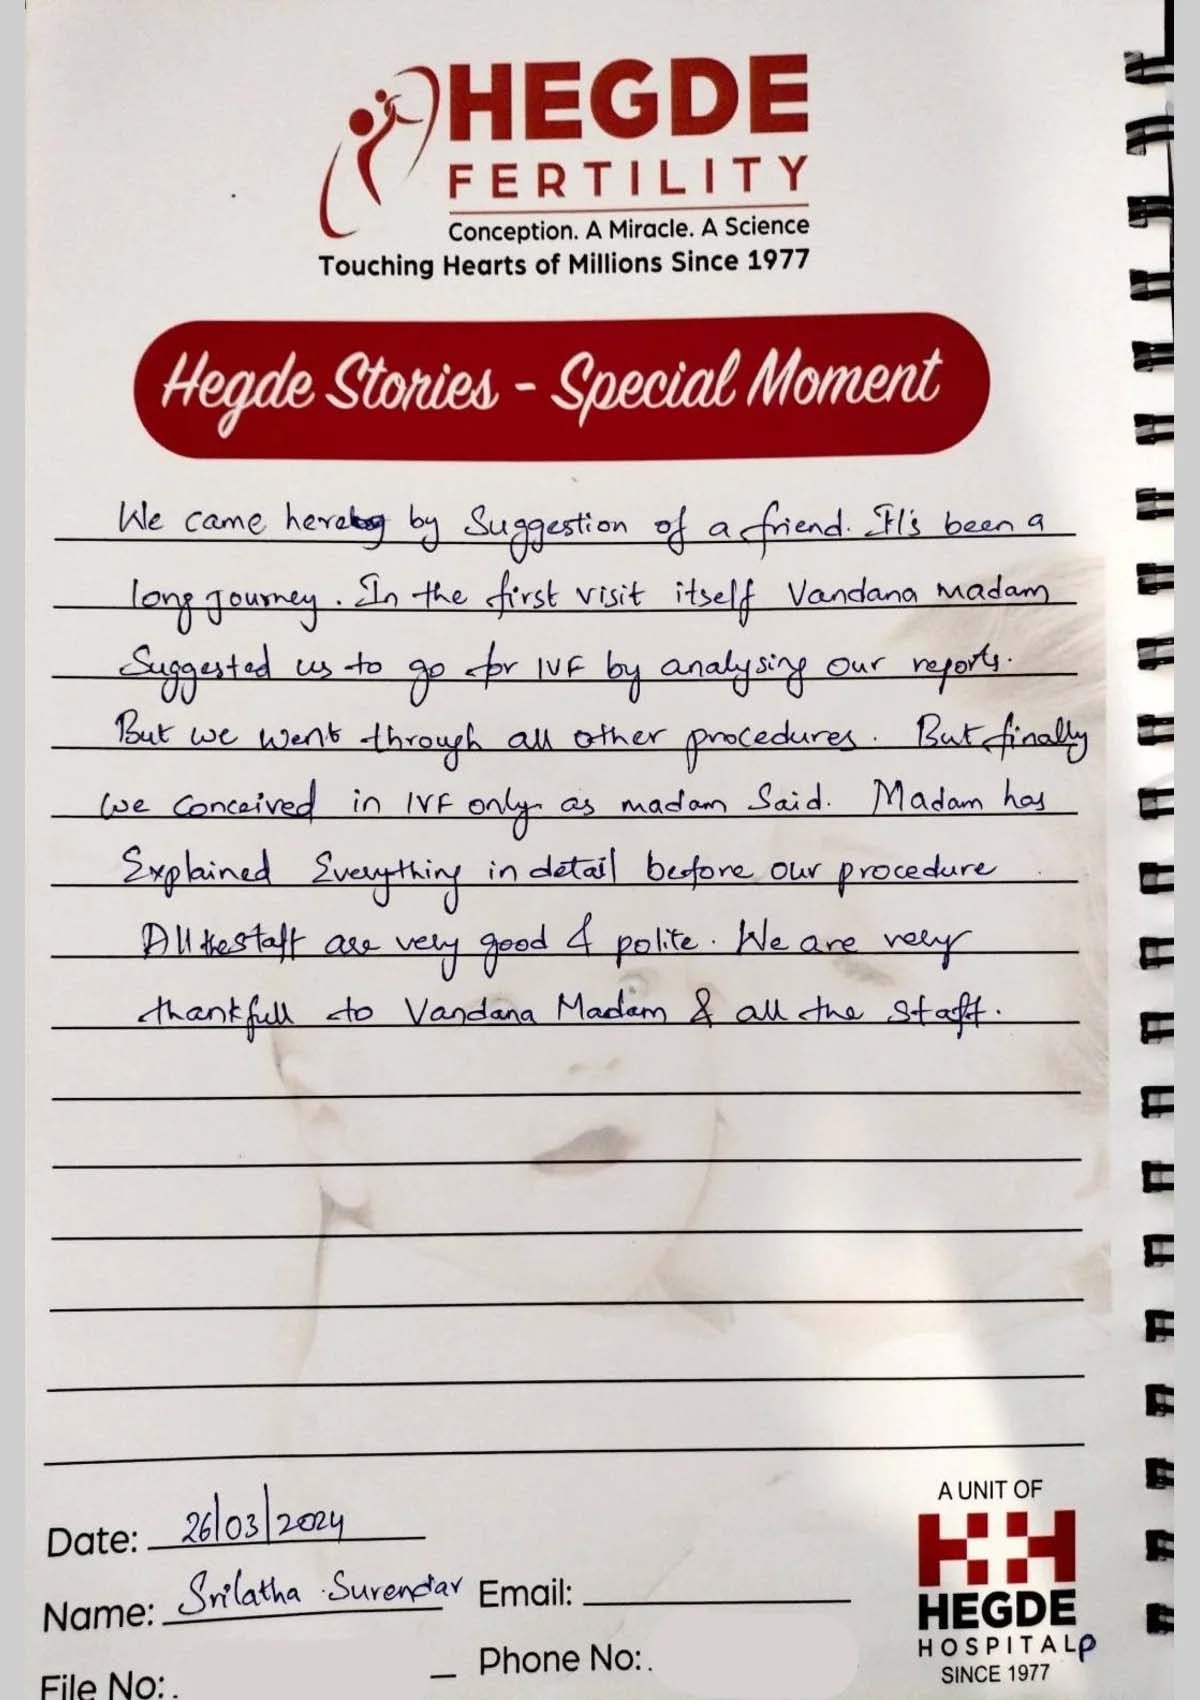 HEGDE
FERTILITY
Conception. A Miracle. A Science
Touching Hearts of Millions Since 1977
Hegde Stories - Special Moment
We came here by Suggestion of a friend. It's been a
long Journey. In the first visit itself Vandana madam
Suggested us to go for IVF by analysing our reports.
But we went through all other procedures. But finally
we Conceived in IVF only as madam Said. Madam has
Explained Everything in detail before our procedure
All the staff are very good & polite. We are very
thankfull to Vandana Madam & all the staff.
Date: 26/03/2024
Name: Srilatha Surendar Email:
File No:. Phone No:.
A UNIT OF
HH
HEGDE
HOSPITAL
SINCE 1977